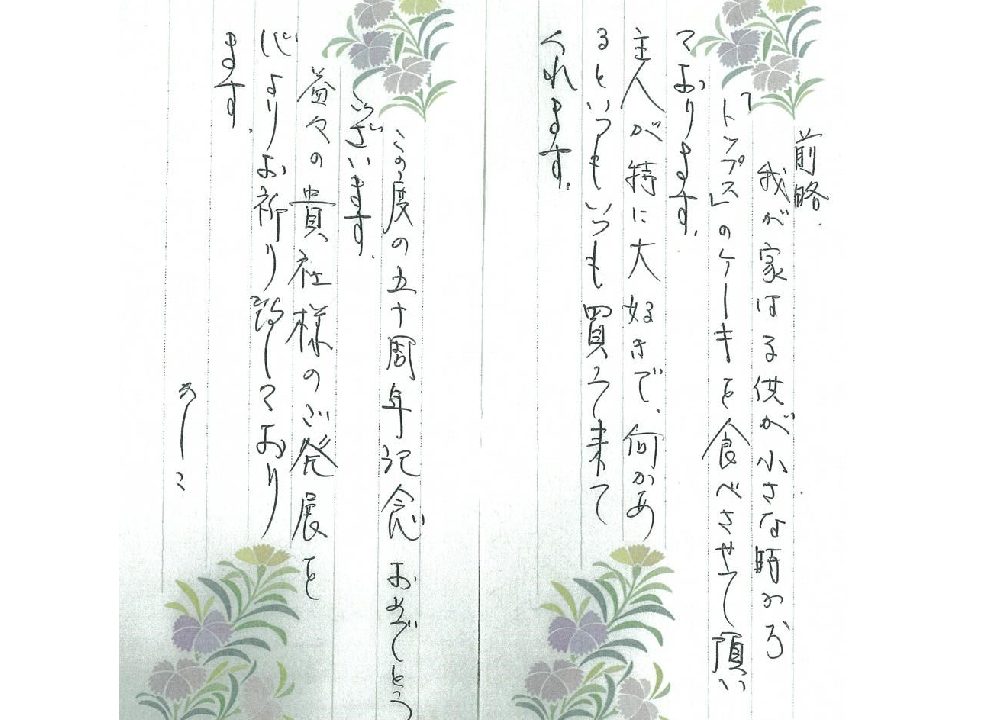 前略
我が家は子供が小さな時から
「トップス」のケーキを食べさせて頂い
ております。
主人が特に大好きで、何かあ
るといつもいつも買って来て
くれます。
この度の五十周年記念おめでとう
ございます。
益々の貴社様のご発展を
心よりお祈り致しており
ます。
かしこ